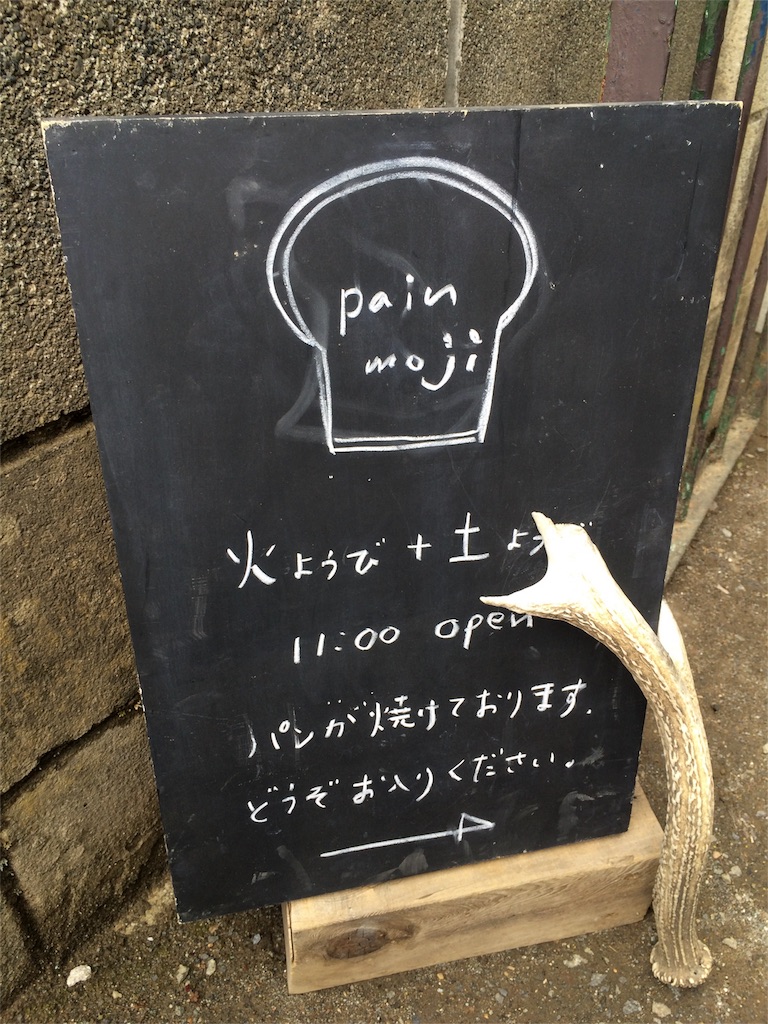 pain
moji
火ようび + 土よ
11:00 open
パンが焼けております.
どうぞお入りください。